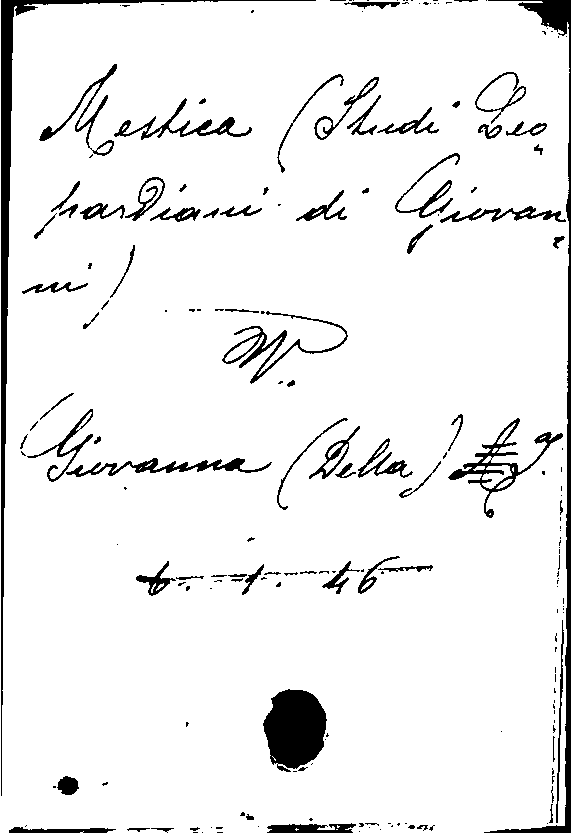 Mestica (Studi Leo-
pardiani di Giovan-
ni)
V.
Giovanna (Della)
6. 1. 46